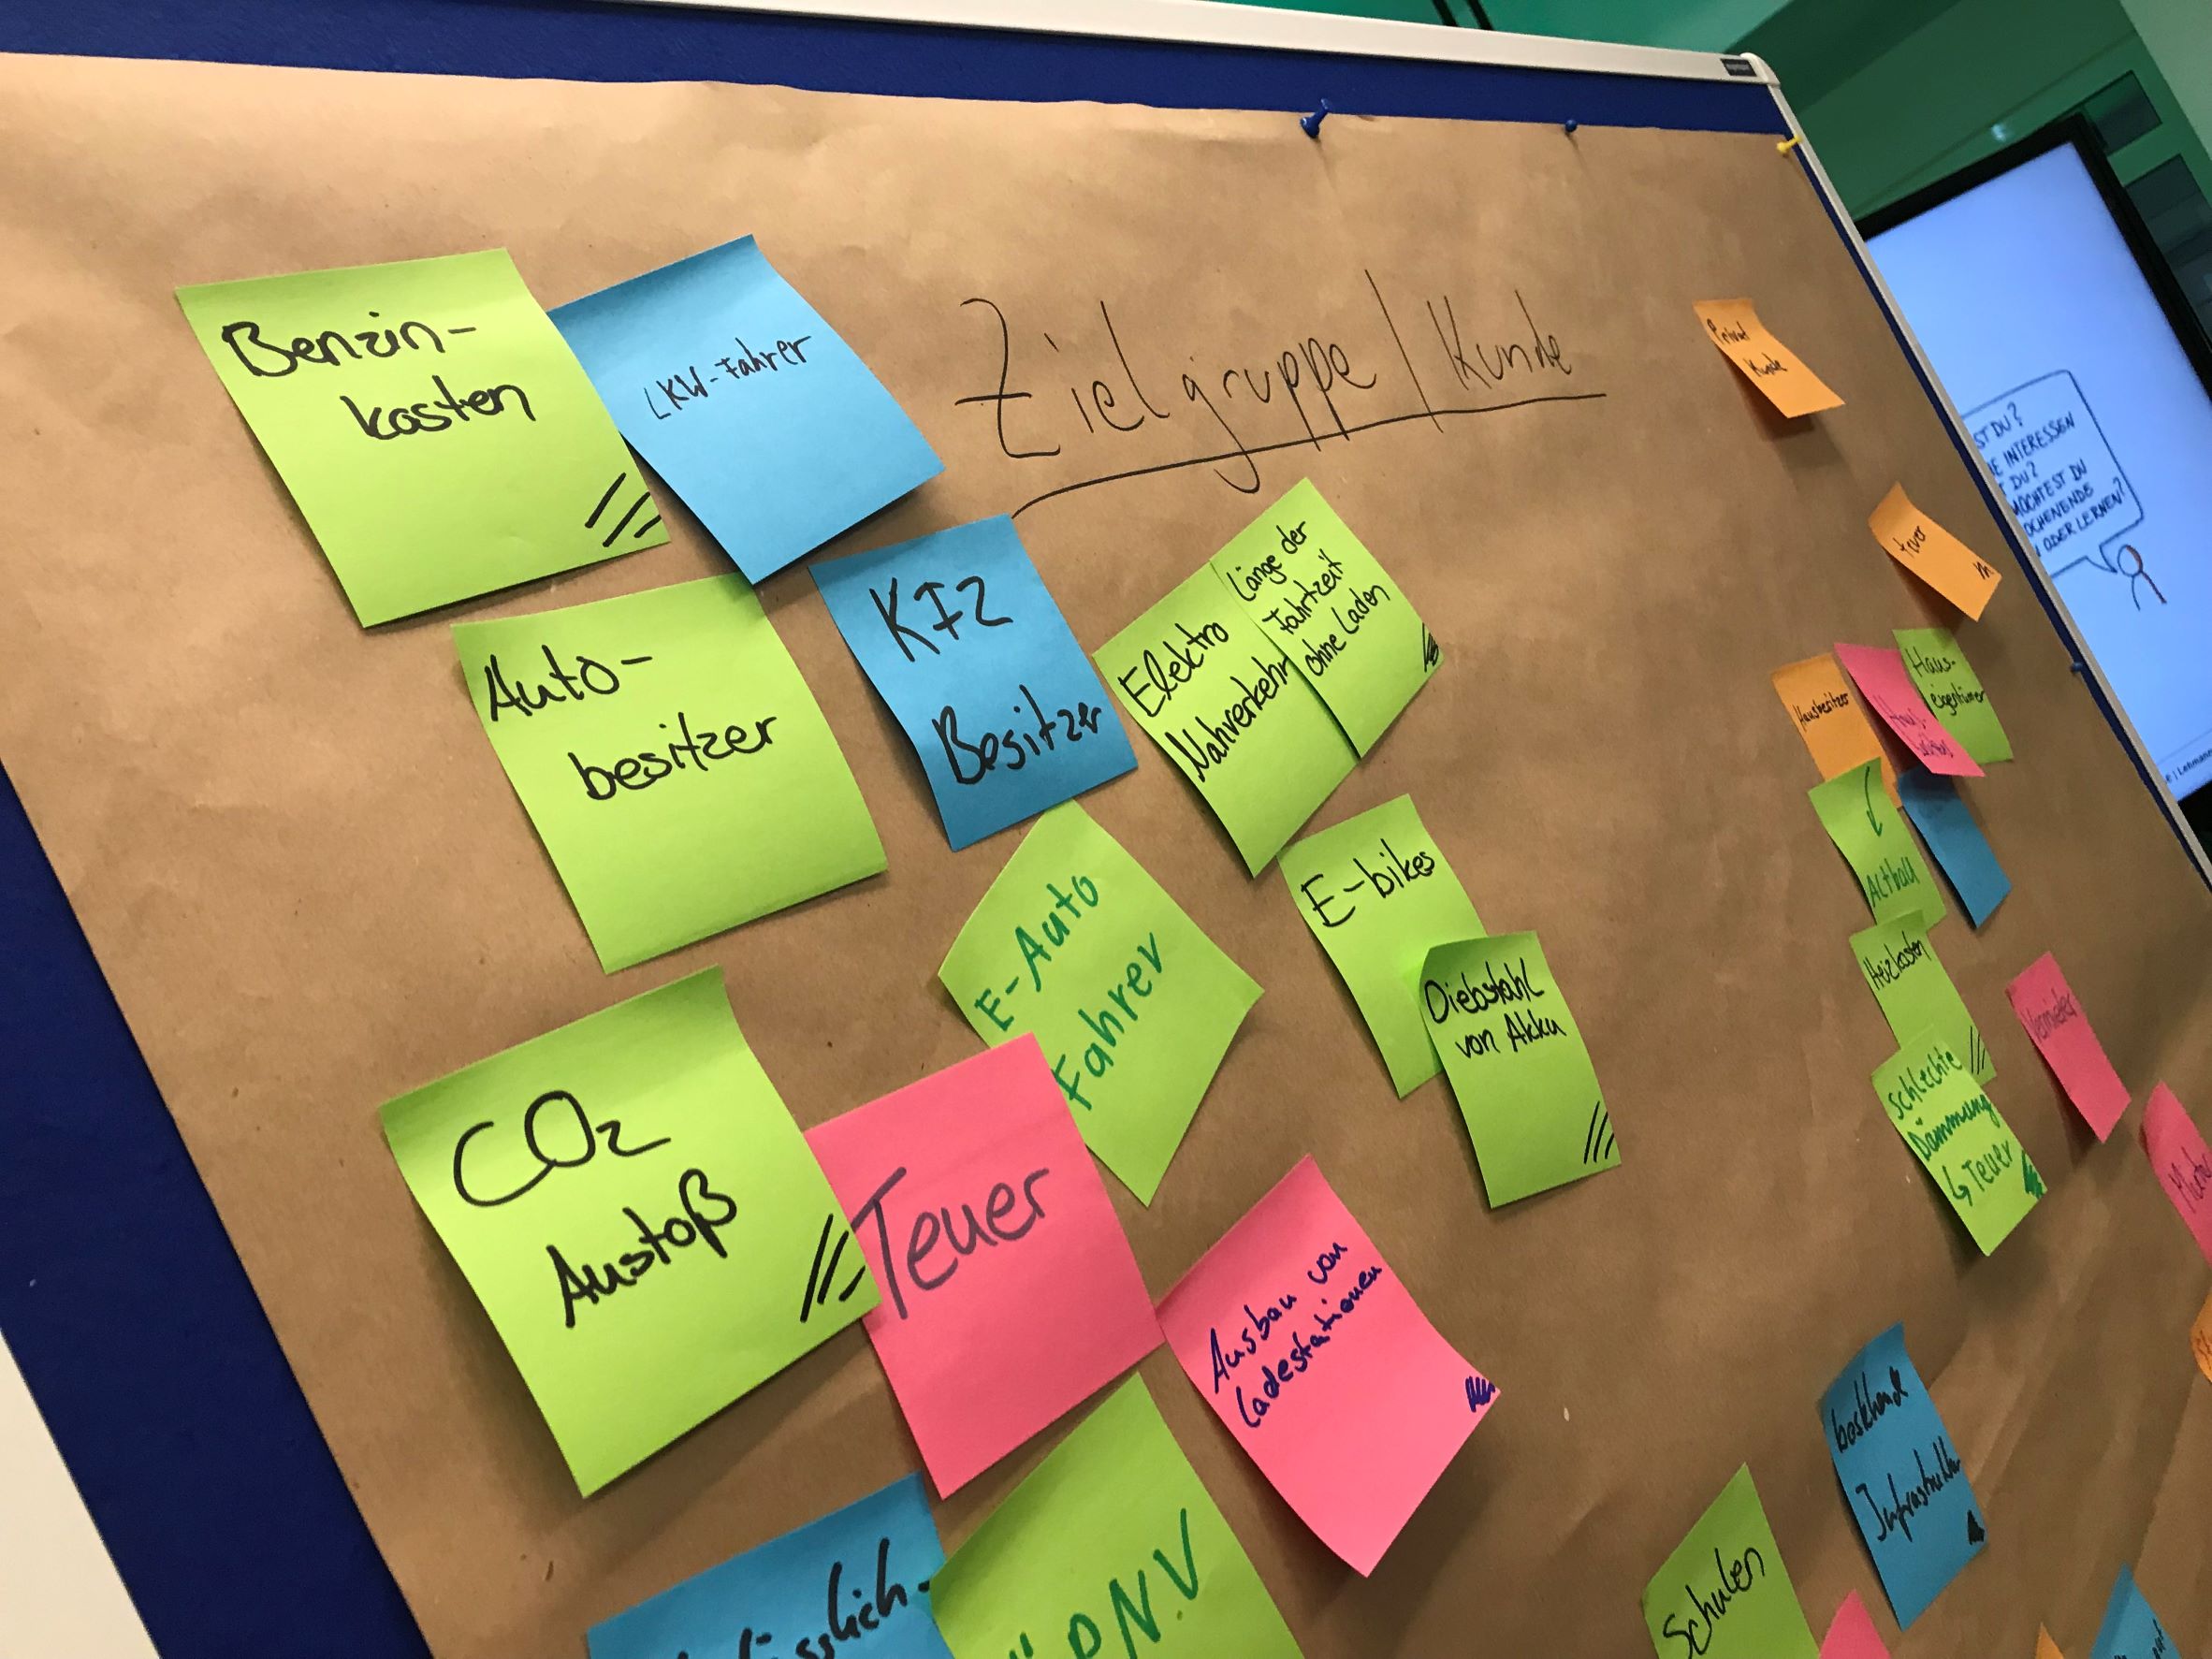 Zielgruppe / Kunde
Benzin-
kosten
LKW-Fahrer
Auto-
besitzer
KFZ
Besitzer
Elektro
Nahverkehr
Länge der
Fahrtzeit
ohne Laden
E-Auto
Fahrer
E-bikes
Diebstahl
von Akku
CO2
Austoß
Teuer
Ausbau von
Ladestationen
ÖPNV
Privat
Kunde
Hausbesitzer
Haus-
eigentümer
Altbau
Heizkosten
Schlechte
Dämmung
↳ Teuer
Vermieter
Schulen
ST DU?
INTERESSEN
T DU?
MÖCHTEST DU
OCHENENDE
ODER LERNEN?